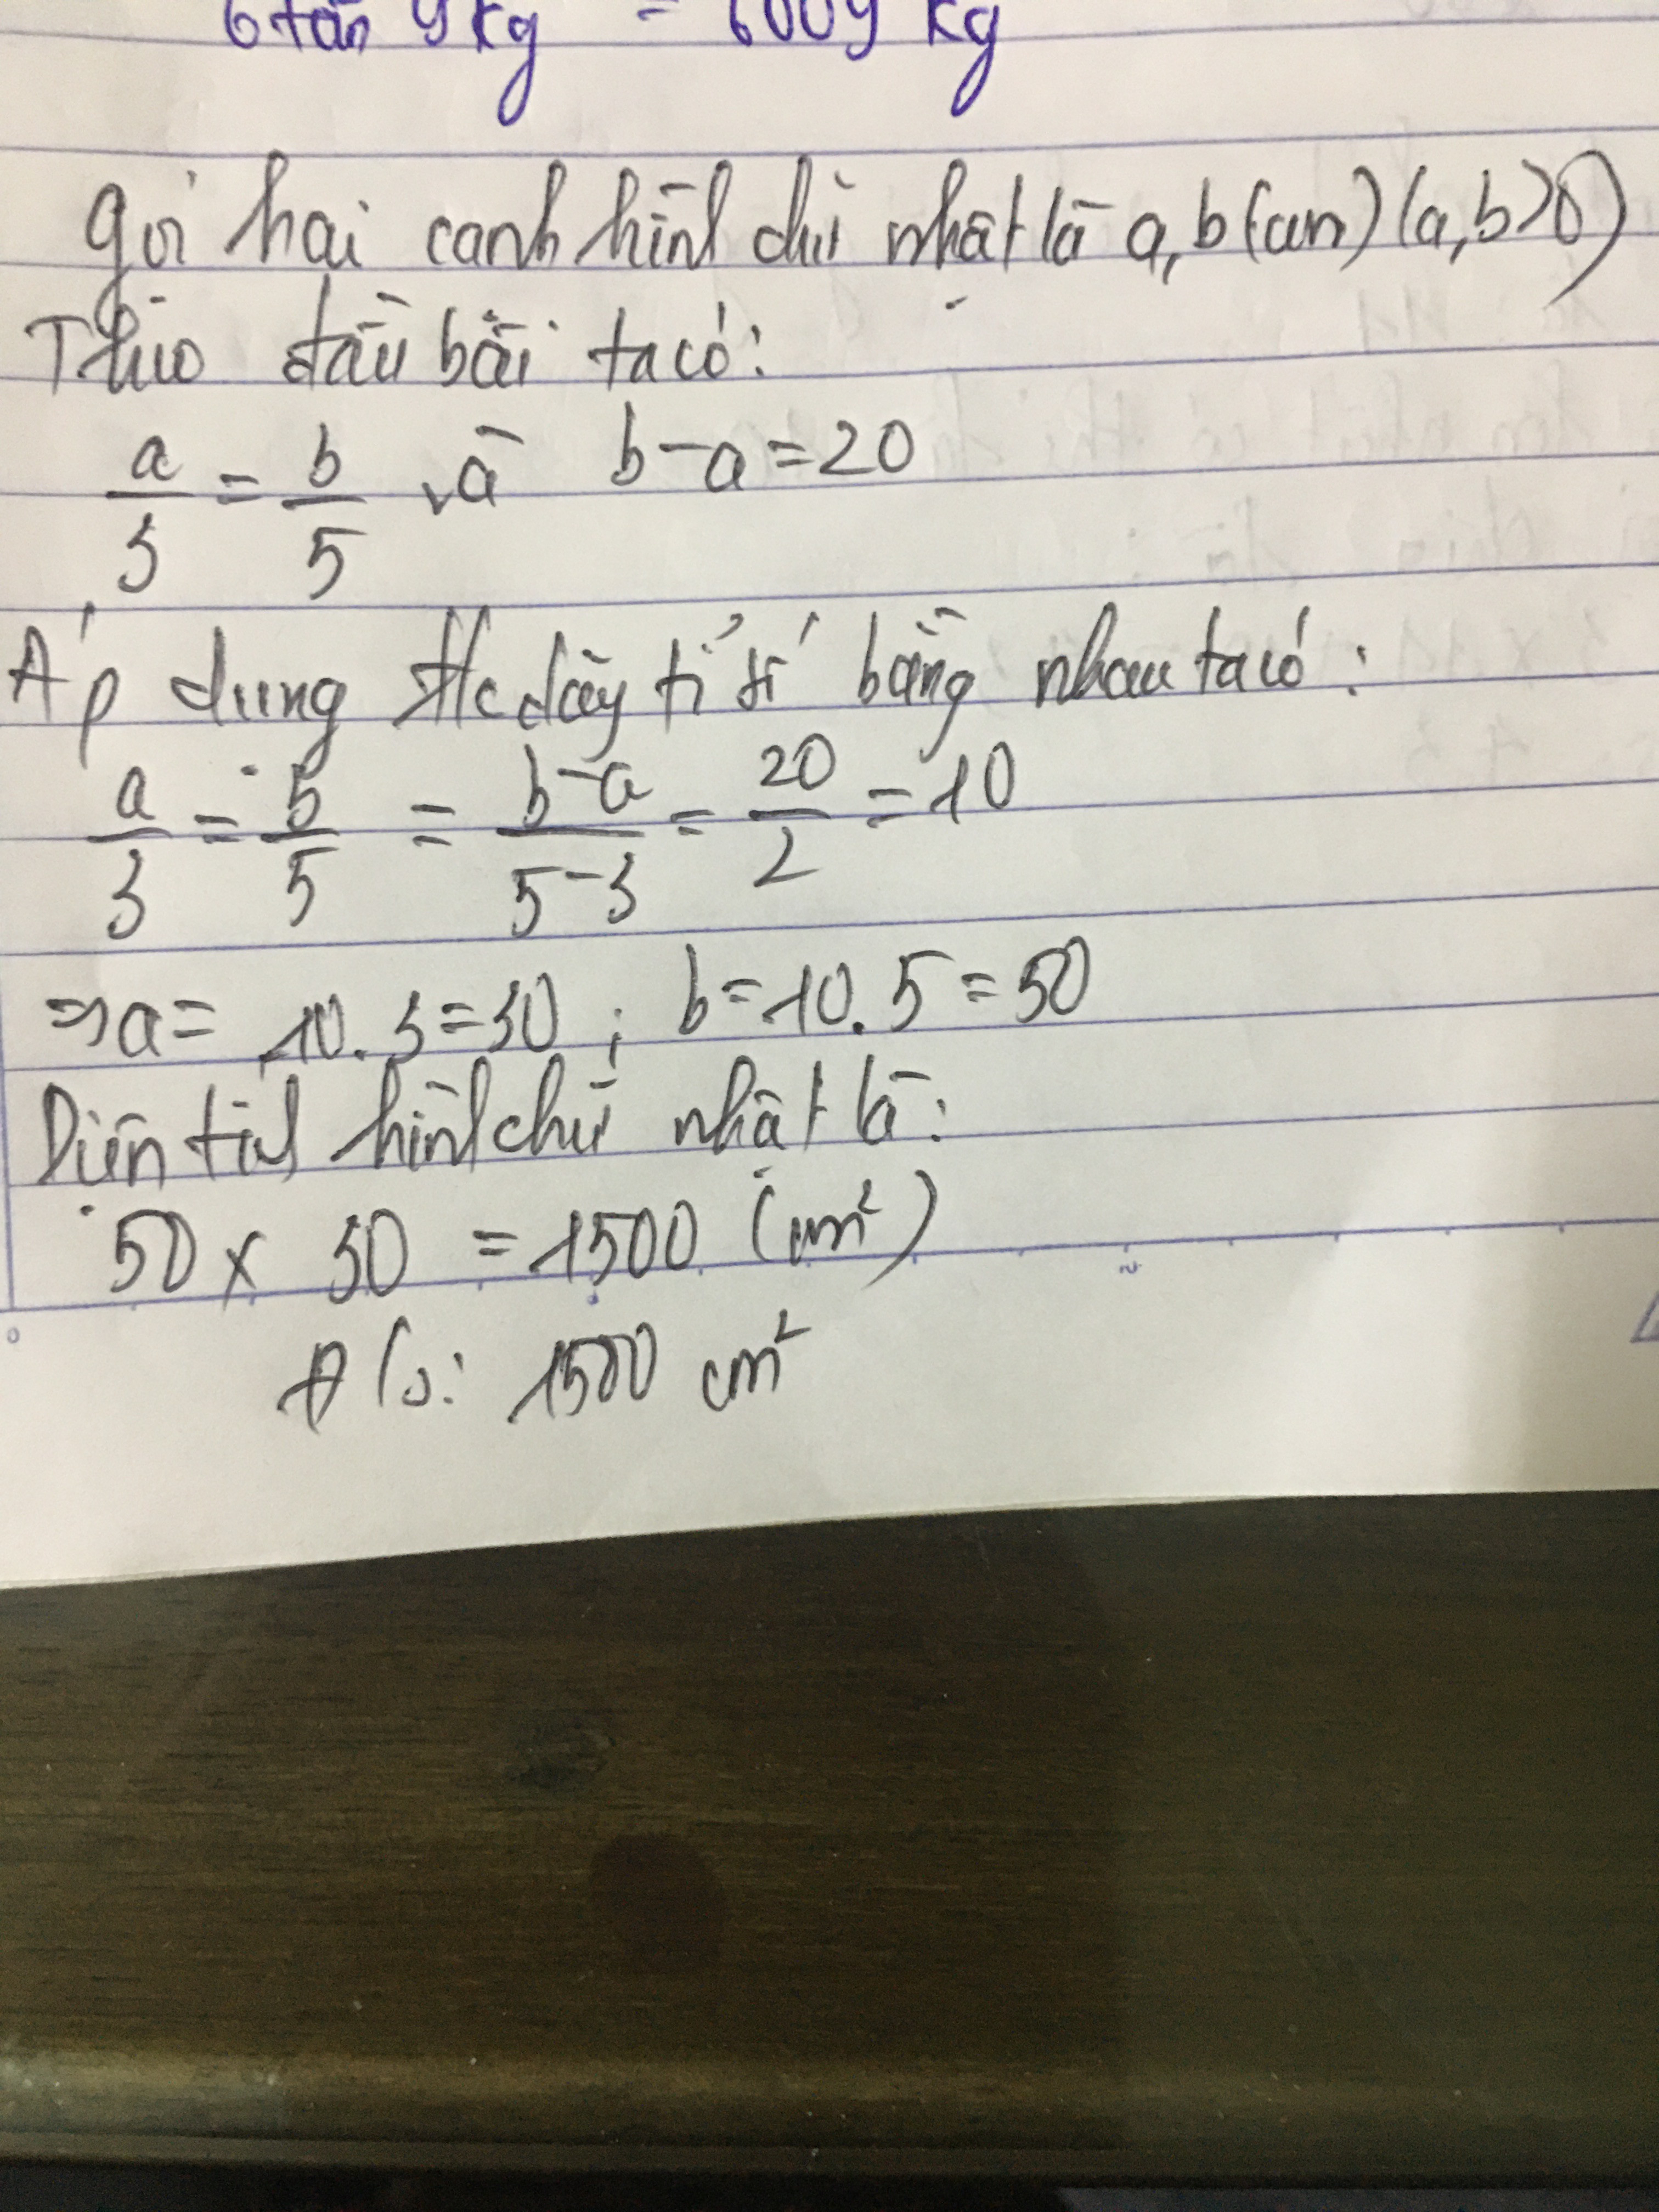 6 tấn 9 kg = 6009 kg
gọi hai cạnh hình chữ nhật là a, b (cm) (a, b > 0)
Theo đầu bài ta có:
a/3 = b/5 và b - a = 20
Áp dụng t/c dãy tỉ số bằng nhau ta có:
a/3 = b/5 = b-a/5-3 = 20/2 = 10
=> a = 10.3 = 30 ; b = 10.5 = 50
Diện tích hình chữ nhật là:
50 x 30 = 1500 (cm²)
Đ/S: 1500 cm²